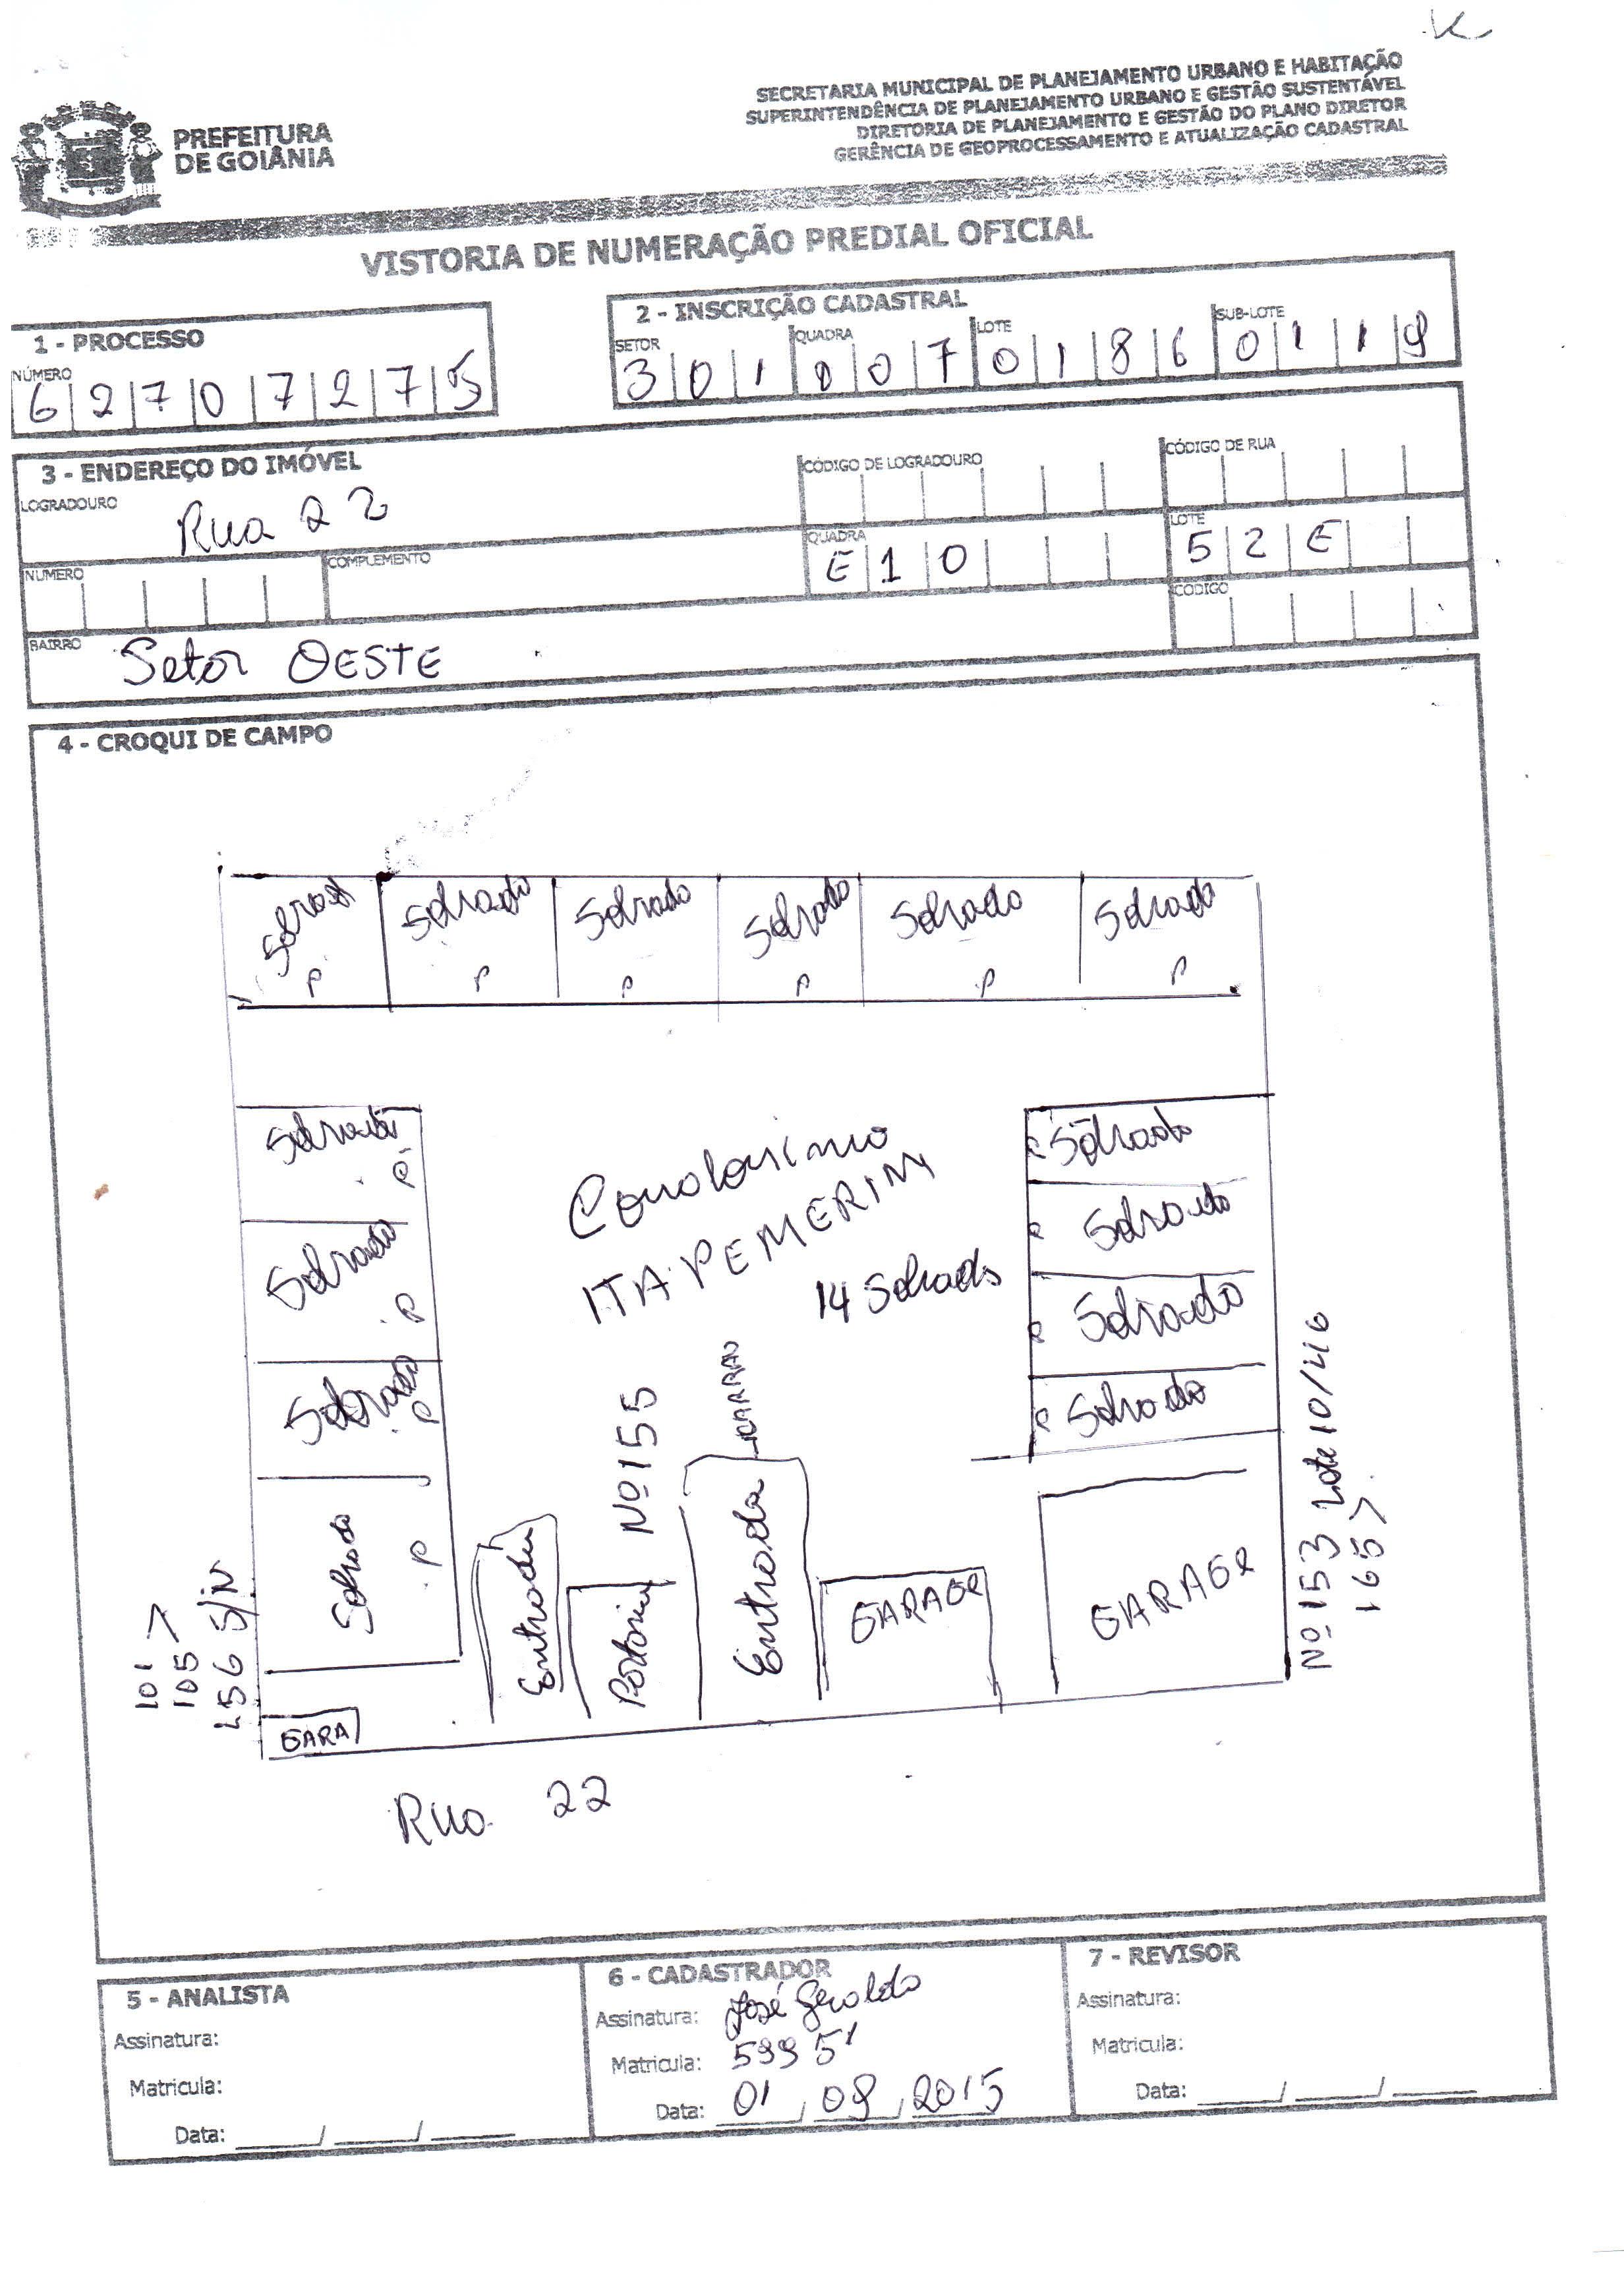 SECRETARIA MUNICIPAL DE PLANEJAMENTO URBANO E HABITAÇÃO
SUPERINTENDÊNCIA DE PLANEJAMENTO URBANO E GESTÃO SUSTENTÁVEL
DIRETORIA DE PLANEJAMENTO E GESTÃO DO PLANO DIRETOR
GERÊNCIA DE GEOPROCESSAMENTO E ATUALIZAÇÃO CADASTRAL
PREFEITURA
DE GOIÂNIA
VISTORIA DE NUMERAÇÃO PREDIAL OFICIAL
1 - PROCESSO
NÚMERO
6 2 7 0 7 2 7 5
2 - INSCRIÇÃO CADASTRAL
SETOR QUADRA LOTE SUB-LOTE
3 0 1 0 0 7 0 1 8 6 0 1 1 9
3 - ENDEREÇO DO IMÓVEL
LOGRADOURO Rua 22
CÓDIGO DE LOGRADOURO
CÓDIGO DE RUA
NUMERO
COMPLEMENTO
QUADRA E 1 0
LOTE 5 2 E
BAIRRO Setor OESTE
CODIGO
4 - CROQUI DE CAMPO
Sobrado Sobrado Sobrado Sobrado Sobrado Sobrado
P P P P P P
Sobrado P
Sobrado P
Sobrado P
Sobrado P
Condominio
ITAPEMERIM
14 Sobrads
P Sobrado
P Sobrado
P Sobrado
P Sobrado
101 >
105 >
L56 S/N
GARA
Entrada
Portaria
Nº 155
Entrada
CARRO
GARAGE
GARAGE
Nº 153 Lote 10/46
165 >
Rua 22
5 - ANALISTA
Assinatura:
Matricula:
Data: ____/____/____
6 - CADASTRADOR
Assinatura: José Geraldo
Matricula: 59951
Data: 01/09/2015
7 - REVISOR
Assinatura:
Matricula:
Data: ____/____/____